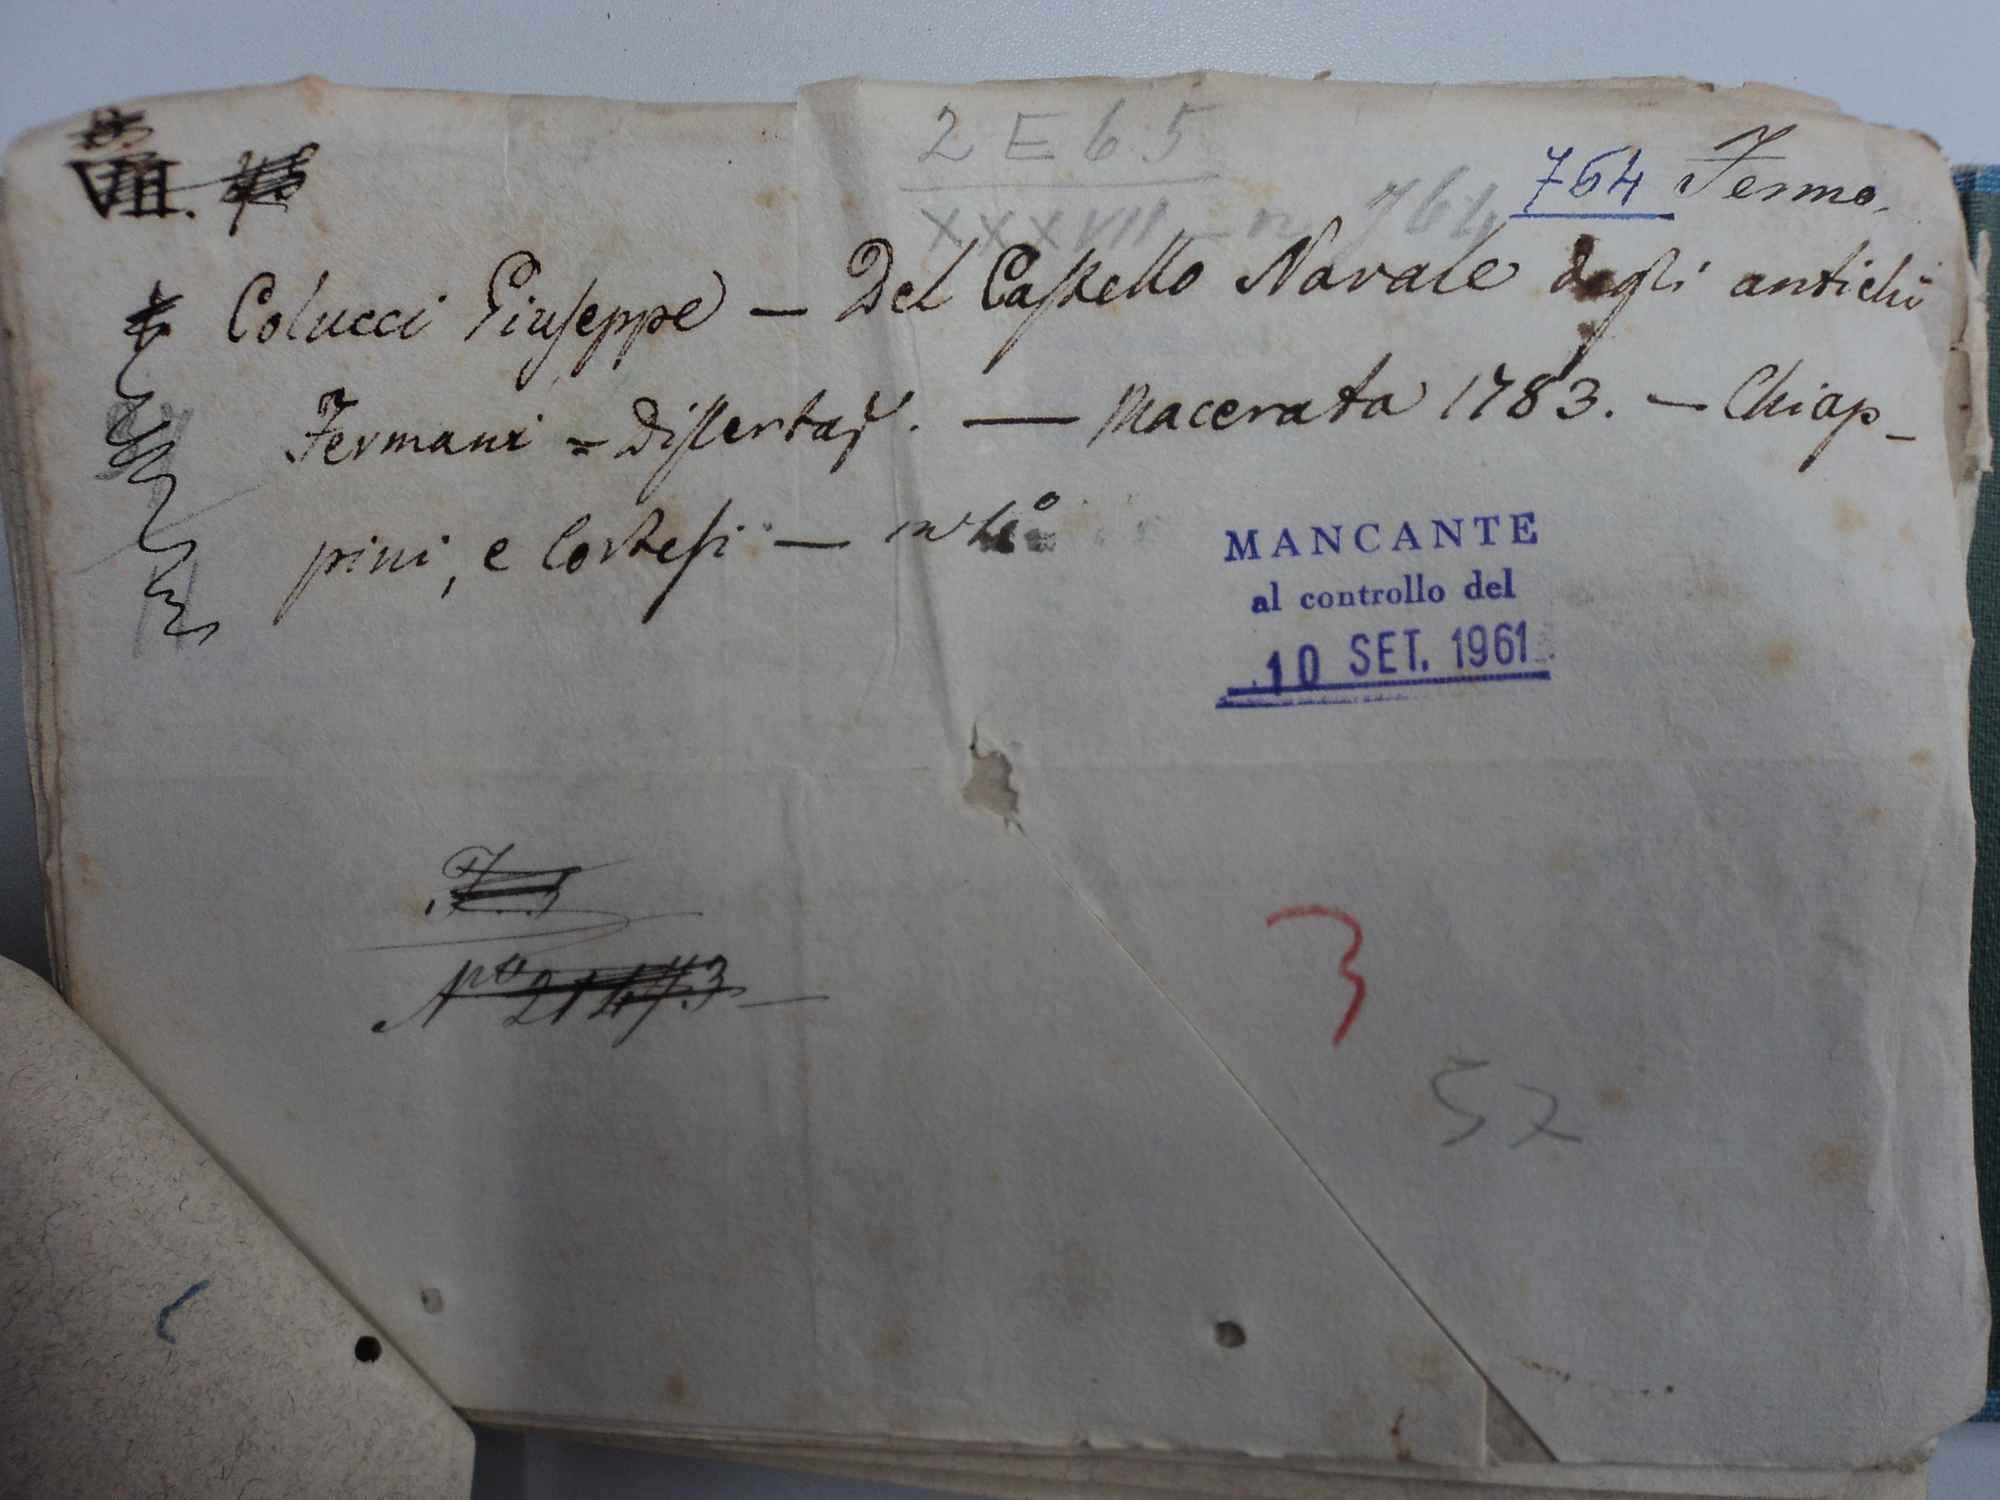 2 E 65
VII.
764 Fermo.
XXXVII - n 764
Colucci Giuseppe — Del Castello Navale degli antichi
Fermani = Dissertaz.e. — Macerata 1783. — Chiap-
pini, e Cortesi — in 4°
MANCANTE
al controllo del
10 SET. 1961
No 21473
3
52